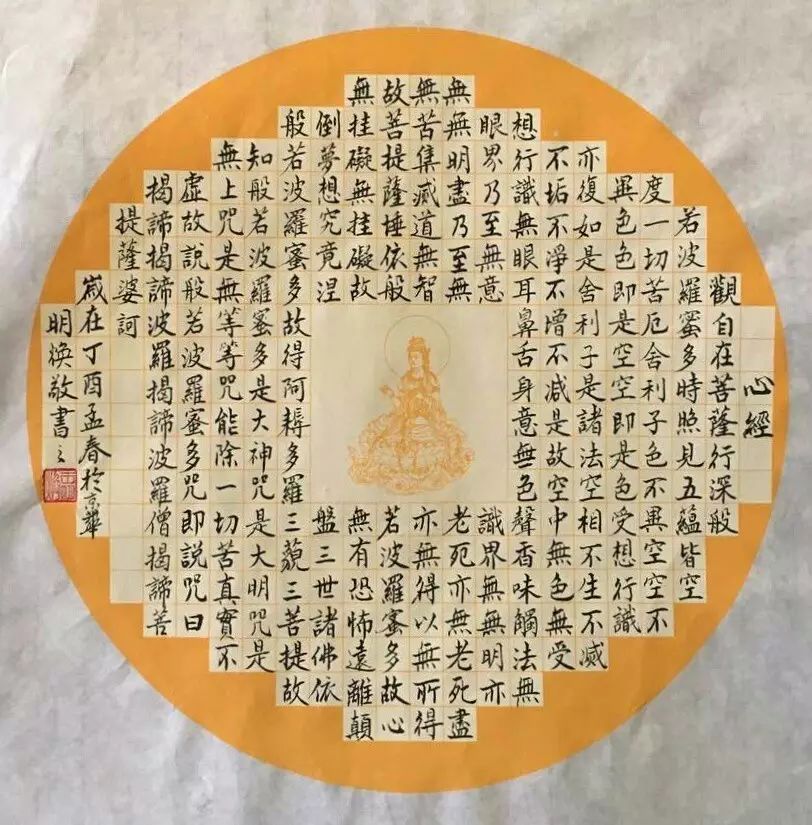 心經
觀自在菩薩行深般
若波羅蜜多時照見五蘊皆空
度一切苦厄舍利子色不異空空不
異色色即是空空即是色受想行識
亦復如是舍利子是諸法空相不生不滅
不垢不淨不增不减是故空中無色無受
想行識無眼耳鼻舌身意無色聲香味觸法無
眼界乃至無意識界無無明亦
無無明盡乃至無老死亦無老死盡
無苦集滅道無智亦無得以無所得
故菩提薩埵依般若波羅蜜多故心
無挂礙無挂礙故無有恐怖遠離顛
倒夢想究竟涅盤三世諸佛依
般若波羅蜜多故得阿耨多羅三藐三菩提故
知般若波羅蜜多是大神咒是大明咒是
無上咒是無等等咒能除一切苦真實不
虛故說般若波羅蜜多咒即說咒曰
揭諦揭諦波羅揭諦波羅僧揭諦菩
提薩婆訶
歲在丁酉孟春於京華
明煥敬書之